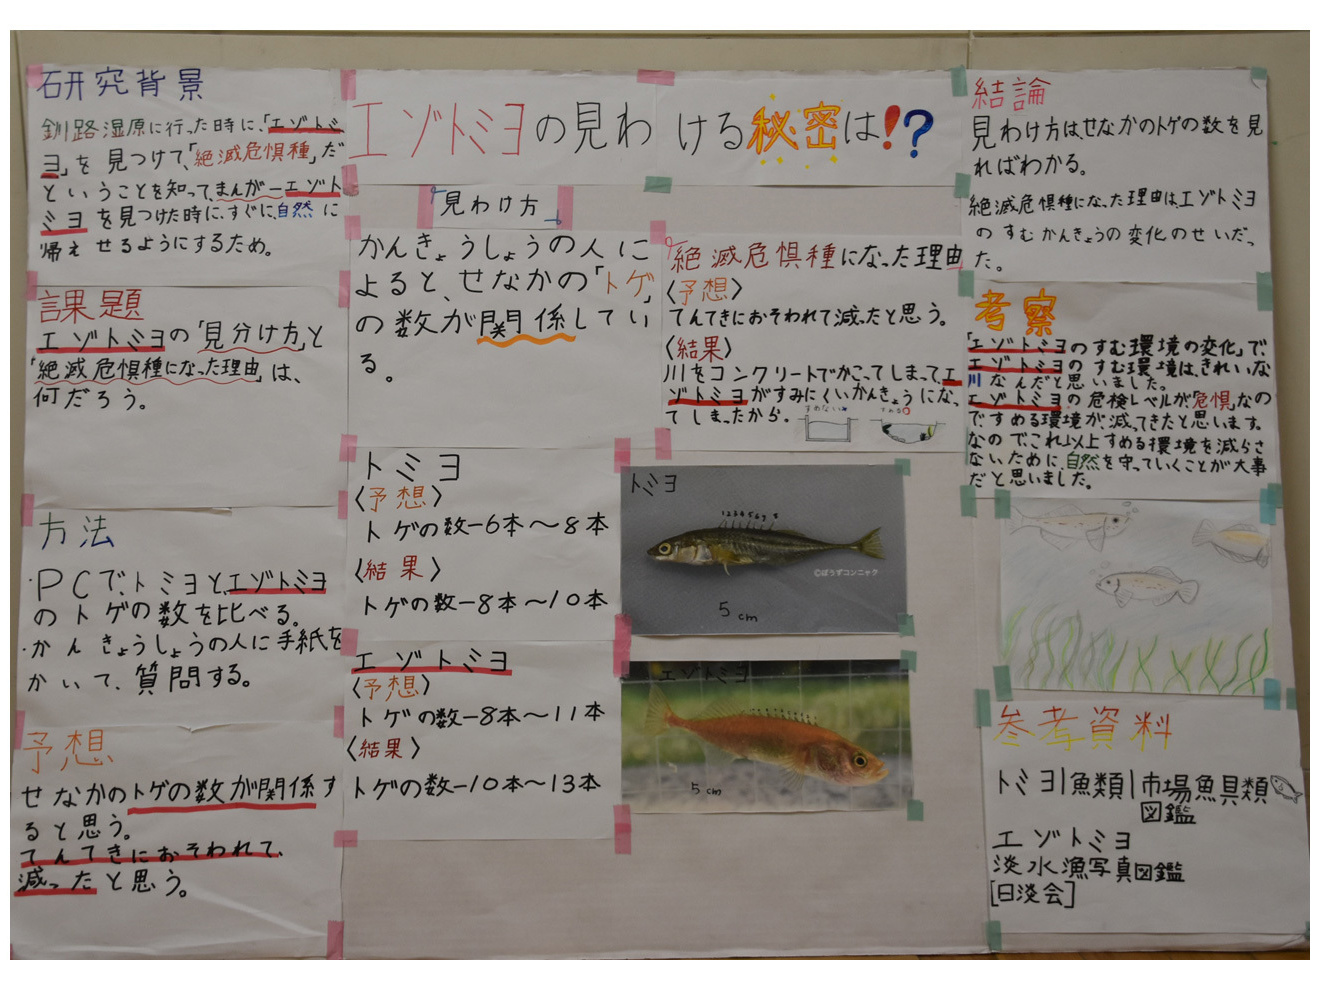 エゾトミヨの見わける秘密は!?
研究背景
釧路湿原に行った時に、「エゾトミ
ヨ」を見つけて、「絶滅危惧種」だ
ということを知って、まんが一エゾト
ミヨを見つけた時に、すぐに、自然に
帰えせるようにするため。
課題
エゾトミヨの「見分け方」と
「絶滅危惧種になった理由」は、
何だろう。
方法
・PCで、トミヨと、エゾトミヨ
のトゲの数を比べる。
・かんきょうしょうの人に手紙を
かいて、質問する。
予想
せなかのトゲの数が関係す
ると思う。
てんてきにおそわれて、
減ったと思う。
「見わけ方」
かんきょうしょうの人に
よると、せなかの「トゲ」
の数が関係してい
る。
トミヨ
〈予想〉
トゲの数ー6本〜8本
〈結果〉
トゲの数ー8本〜10本
エゾトミヨ
〈予想〉
トゲの数ー8本〜11本
〈結果〉
トゲの数ー10本〜13本
「絶滅危惧種になった理由
〈予想〉
てんてきにおそわれて減ったと思う。
〈結果〉
川をコンクリートでかこってしまって、エ
ゾトミヨがすみにくいかんきょうにな、
てしまったから。
すめない×
すめる○
トミヨ
12345678
©ぼうずコンニャク
5cm
エゾトミヨ
5cm
結論
見わけ方は、せなかのトゲの数を見
ればわかる。
絶滅危惧種になった理由は、エゾトミヨ
のすむかんきょうの変化のせいだっ
た。
考察
「エゾトミヨのすむ環境の変化」で、
エゾトミヨのすむ環境は、きれいな
川なんだと思いました。
エゾトミヨの危検レベルが「危惧」なの
で、すめる環境が、減ってきたと思います。
なのでこれ以上すめる環境を減らさ
ないために、自然を守っていくことが大事
だと思いました。
参考資料
トミヨ|魚類|市場魚貝類
図鑑
エゾトミヨ
淡水漁写真図鑑
[日淡会]